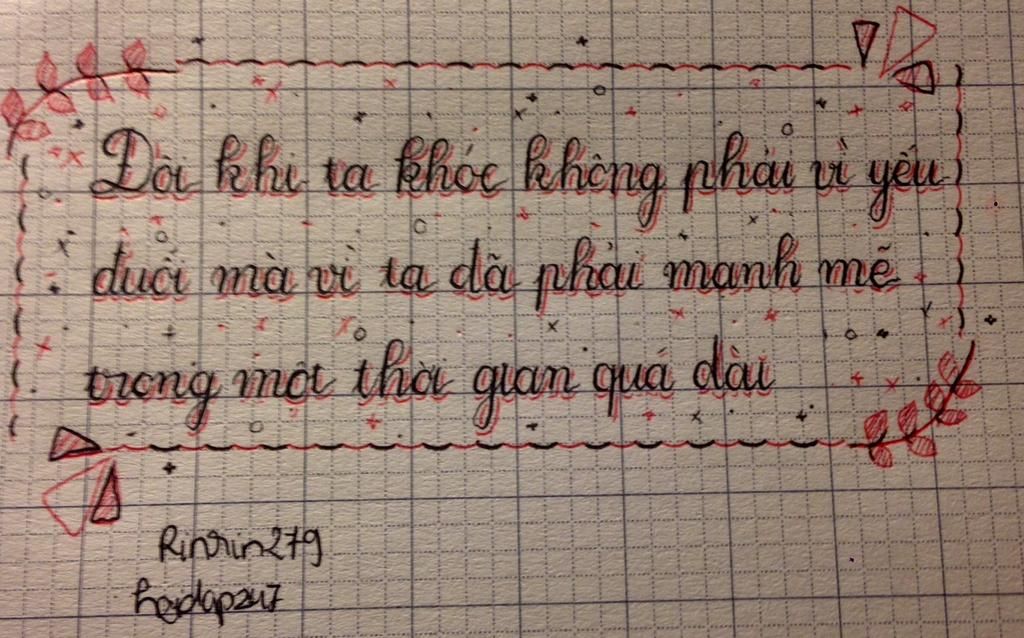 Đôi khi ta khóc không phải vì yếu
đuối mà vì ta đã phải mạnh mẽ
trong một thời gian quá dài
Rinrin279
hoidap247